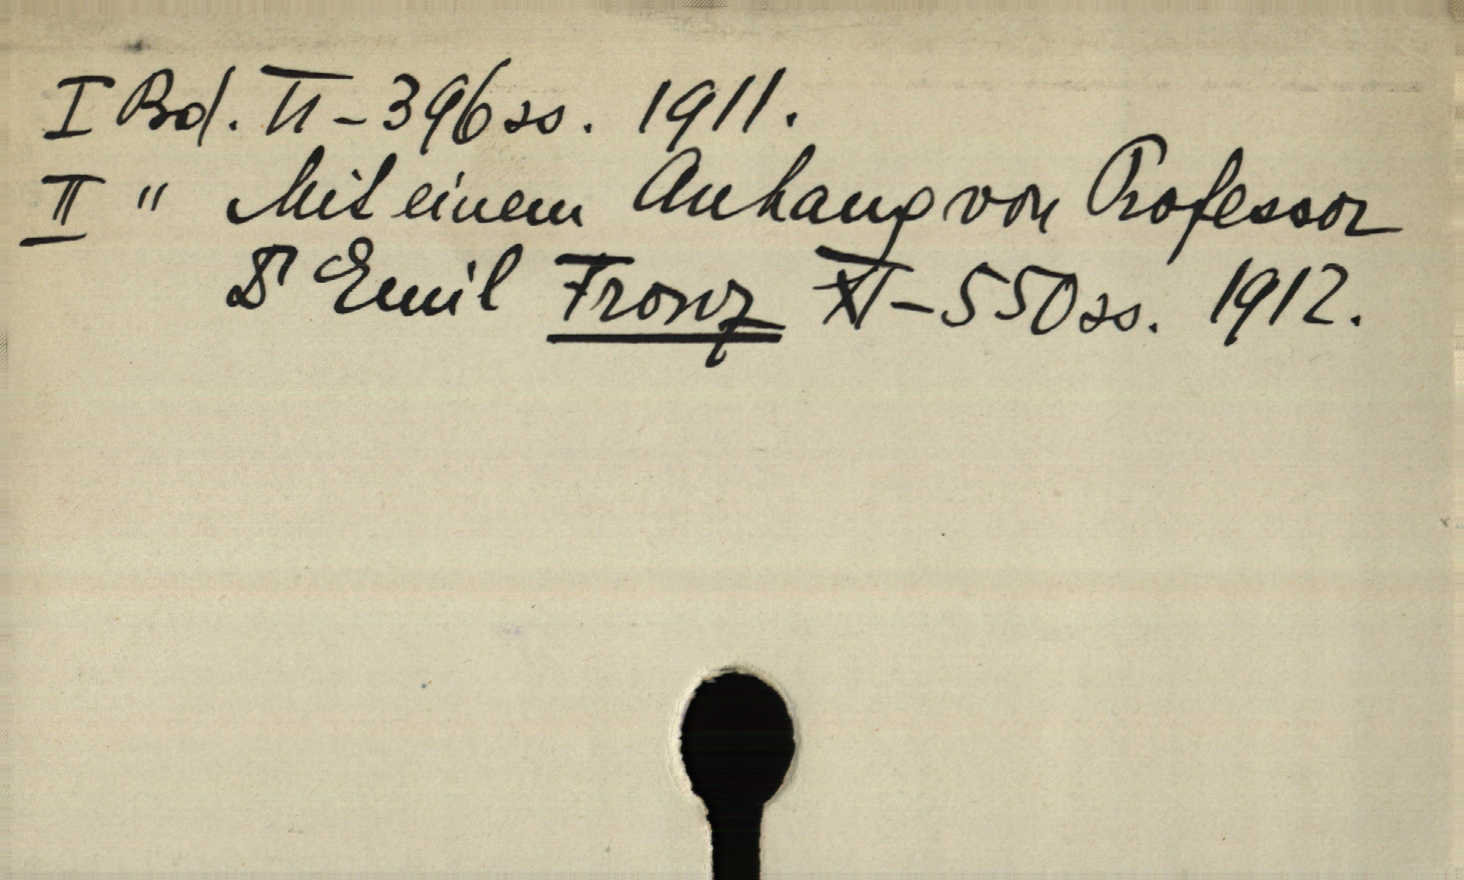 I Bd. II - 396 ss. 1911.
II " Mit einem Anhang von Professor
Dr Emil Fronz XI - 550 ss. 1912.